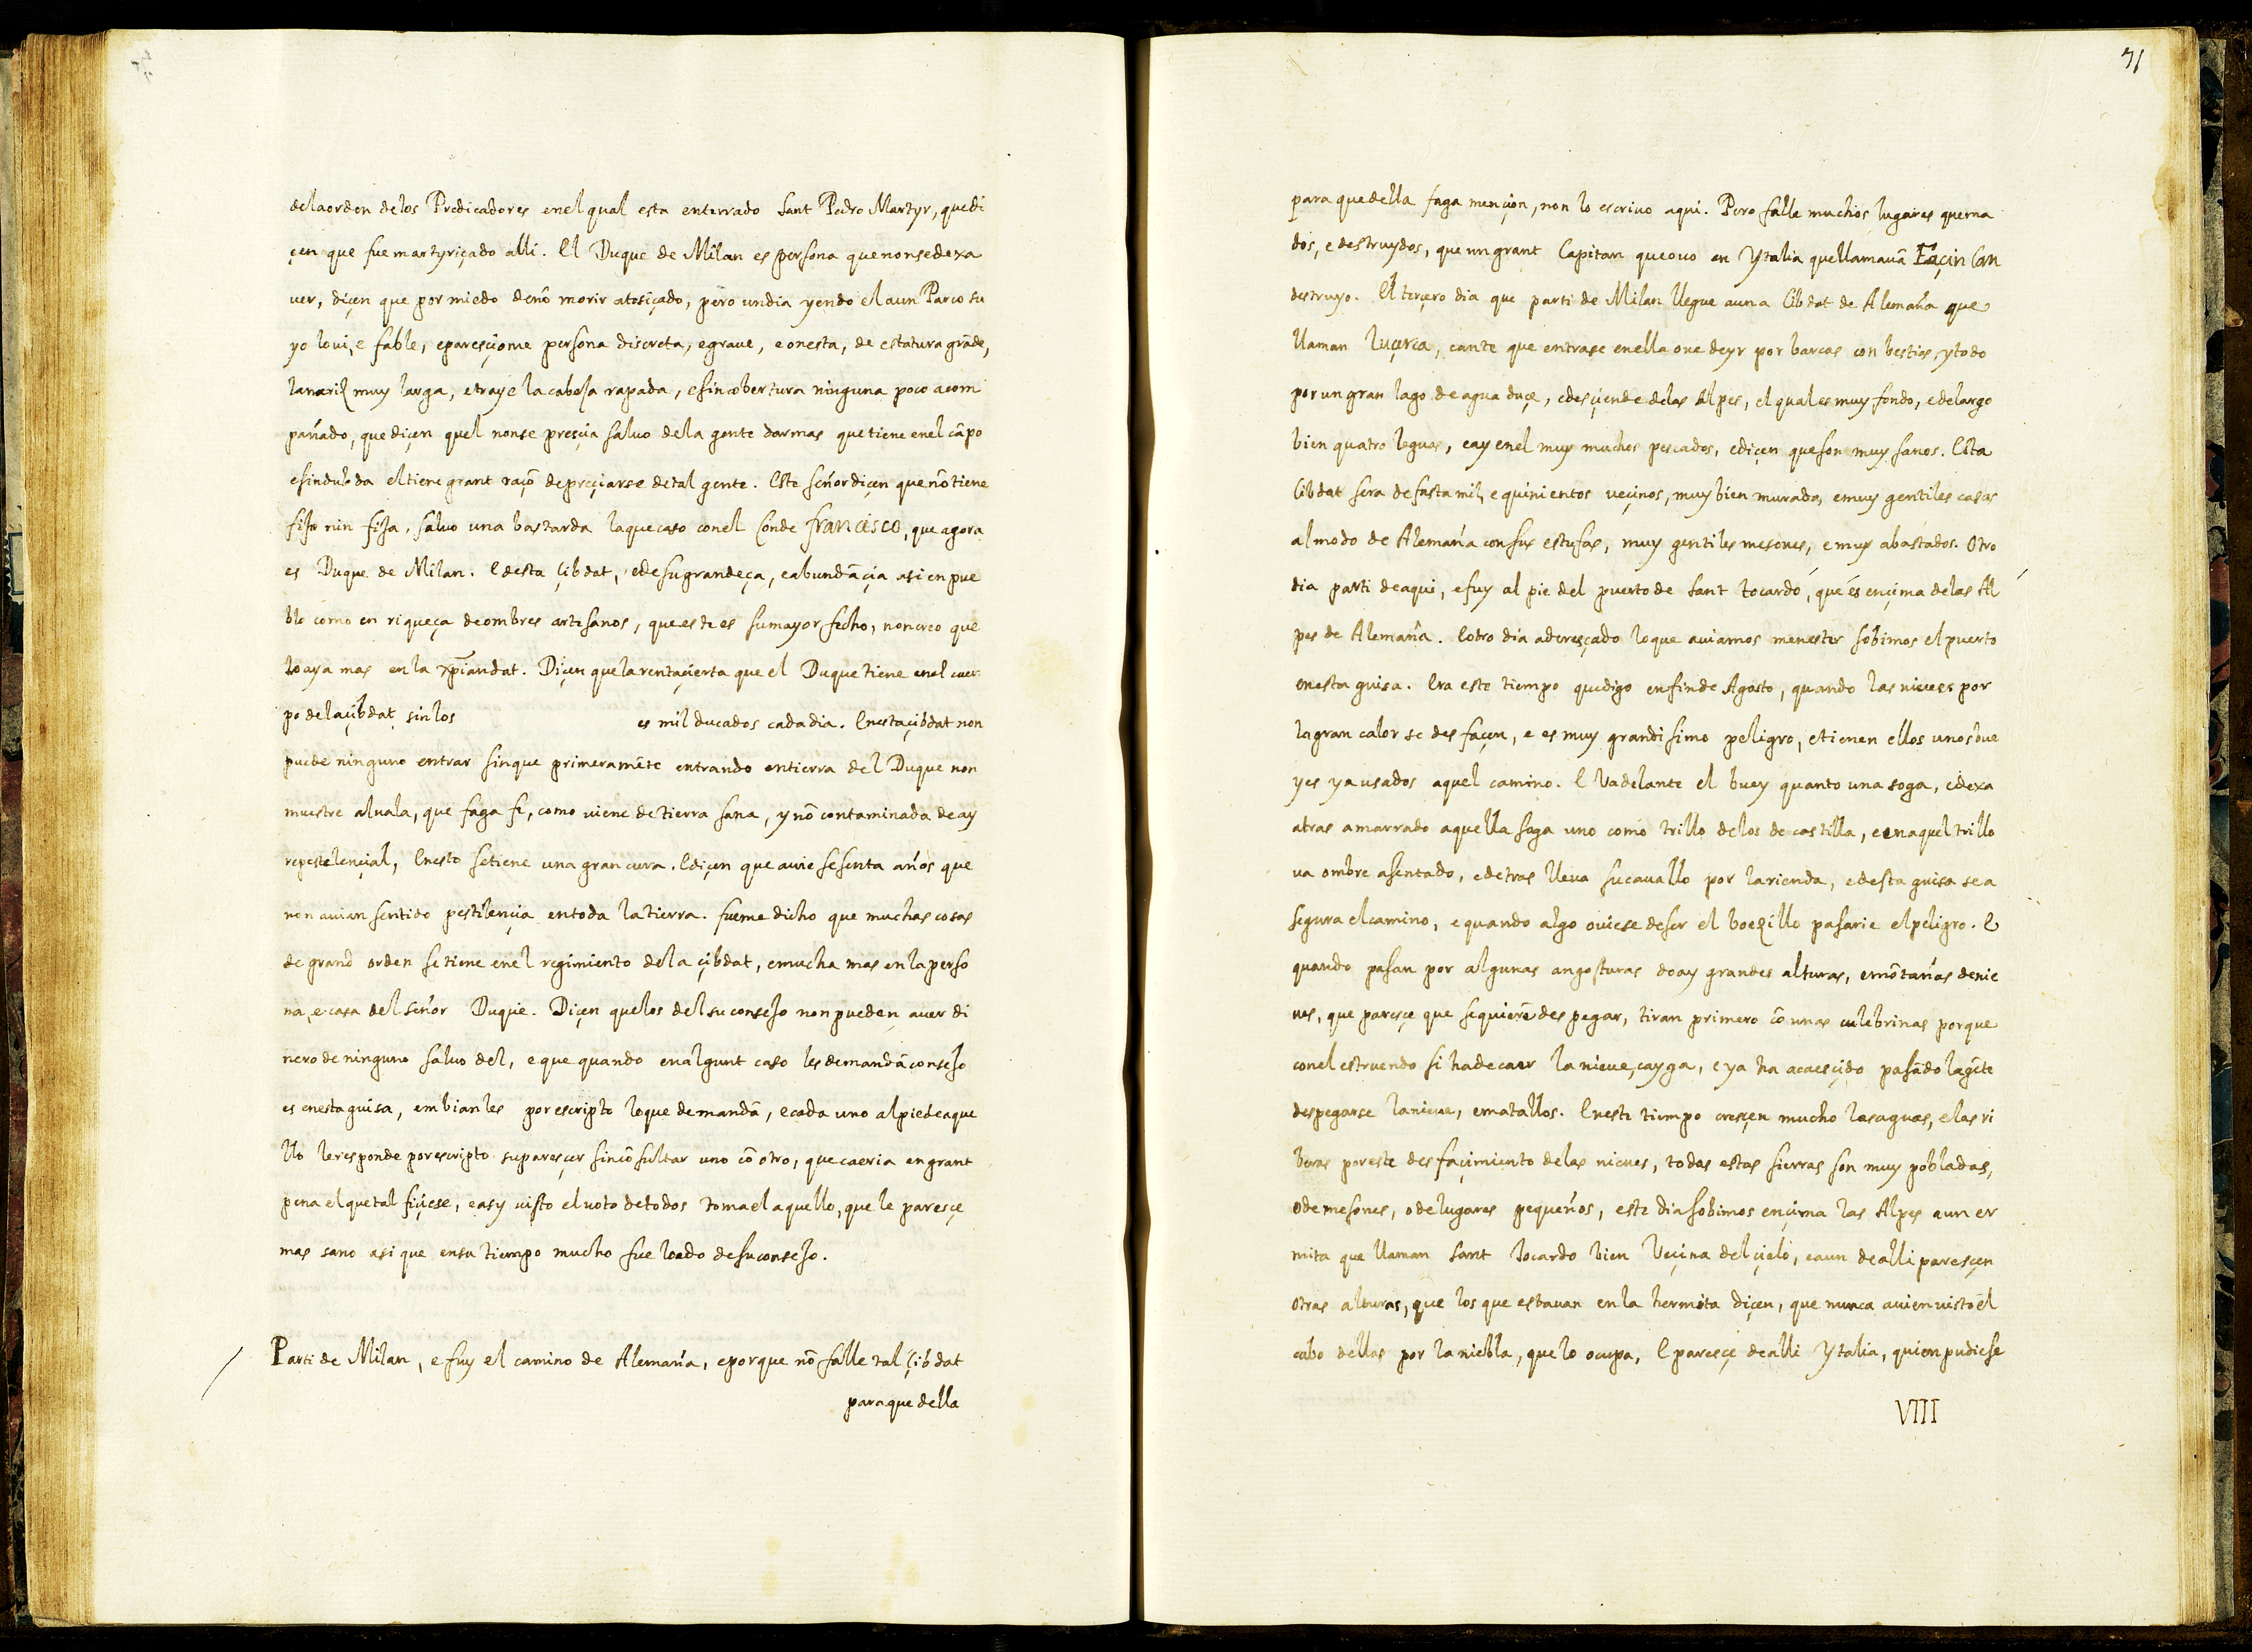 dela orden delos Predicadores enel qual esta enterrado Sant Pedro Martyr, que di
çen que fue martyriçado alli. El Duque de Milan es persona que nonse dexa
ver, diçen que por miedo denō morir atosiçado, pero undia yendo el aun Parco su
yo lo vi, e fable, e paresçiome persona discreta, e grave, e onesta, de estatura grāde,
la nariz muy larga, e traye la cabesa rapada, e sin cobertura ninguna poco acom
pañado, que diçen quel nonse presçia salvo dela gente darmas que tiene enel cāpo
e sin dubda el tiene grant raçō de preçiarse de tal gente. Este señor diçen que nō tiene
fijo nin fija, salvo una bastarda la que caso con el Conde francisco, que agora
es Duque de Milan. E desta çibdat, e de su grandeça, e abundāçia asi en pue
blo como en riqueça de ombres artesanos, que este es su mayor fecho, non creo que
lo aya mas en la xp̄iandat. Diçen que la renta çierta que el Duque tiene enel cuer
po dela çibdat sin los es mil ducados cada dia. En esta çibdat non
puede ninguno entrar sin que primeramēte entrando en tierra del Duque non
muestre alvala, que faga fe, como viene de tierra sana, y nō contaminada de ay
re pestelençial, En esto se tiene una gran cura. E diçen que avie sesenta años que
non avian sentido pestilençia en toda la tierra. fueme dicho que muchas cosas
de grand orden se tiene enel regimiento dela çibdat, e mucha mas en la perso
na, e casa del señor Duque. Diçen que los del su consejo non pueden aver di
nero de ninguno salvo del, e que quando en algunt caso les demandā consejo
es en esta guisa, embianles por escripto lo que demandā, e cada uno al pie de aque
llo le responde por escripto su paresçer sin cōsultar uno cō otro, que caeria en grant
pena el que tal fiçiese, e asy visto el voto de todos toma el aquello, que le paresçe
mas sano asi que en su tiempo mucho fue loado de su consejo.
Parti de Milan, e fuy el camino de Alemaña, e porque nō falle tal çibdat
para que della
71
para que della faga mençion, non lo escrivo aqui. Pero falle muchos lugares quema
dos, e destruydos, que un grant Capitan que ovo en Ytalia que llamavā Façin Can
destruyo. El terçero dia que parti de Milan llegue a una Cibdat de Alemaña que
llaman luçerca, e ante que entrase en ella ove de yr por barcas con bestias, y todo
por un gran lago de agua duçe, e desçiende de las Alpes, el qual es muy fondo, e de largo
bien quatro leguas, e ay enel muy muchos pescados, e diçen que son muy sanos. Esta
Cibdat sera de fasta mil, e quinientos veçinos, muy bien murada, e muy gentiles casas
al modo de Alemaña con sus estufas, muy gentiles mesones, e muy abastados. Otro
dia parti de aqui, e fuy al pie del puerto de Sant tocardo, que es ençima de las Al
pes de Alemaña. E otro dia aderesçado lo que aviamos menester sobimos el puerto
en esta guisa. Era este tiempo que digo en fin de Agosto, quando las nieves por
la gran calor se desfaçen, e es muy grandisimo peligro, e tienen ellos unos bue
yes ya usados aquel camino. E va delante el buey quanto una soga, e dexa
atras amarrado aquella soga uno como trillo delos de castilla, e en aquel trillo
va ombre asentado, e detras lleva su cavallo por la rienda, e desta guisa se a
segura el camino, e quando algo oviese de ser el boezillo pasarie el peligro. E
quando pasan por algunas angosturas do ay grandes alturas, e mōtañas de nie
ves, que paresçe que se quierē despegar, tiran primero cō unas culebrinas porque
con el estruendo si ha de caer la nieve, cayga, e ya ha acaesçido pasādo la gēte
despegarse la nieve, e matallos. En este tiempo cresçen mucho las aguas, e las ri
beras por este desfaçimiento delas nieves, todas estas sierras son muy pobladas,
o de mesones, o de lugares pequeños, este dia sobimos ençima las Alpes a un er
mita que llaman Sant tocardo bien Veçina del çielo, e aun de alli paresçen
otras alturas, que los que estavan en la hermita diçen, que nunca avien visto el
cabo dellas por la niebla, que lo ocupa, E paresçe de alli Ytalia, quien pudiese
VIII